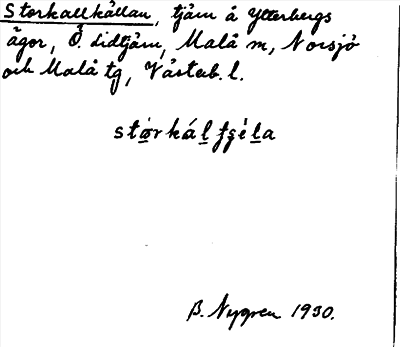 Storkallkällan, tjärn å Ytterbergs
ägor, Ö. Lidtjärn, Malå sn, Norsjö
och Malå tg, Västerb. l.
stǫ́rkáḷ fʂéḷa
B. Nygren 1930.